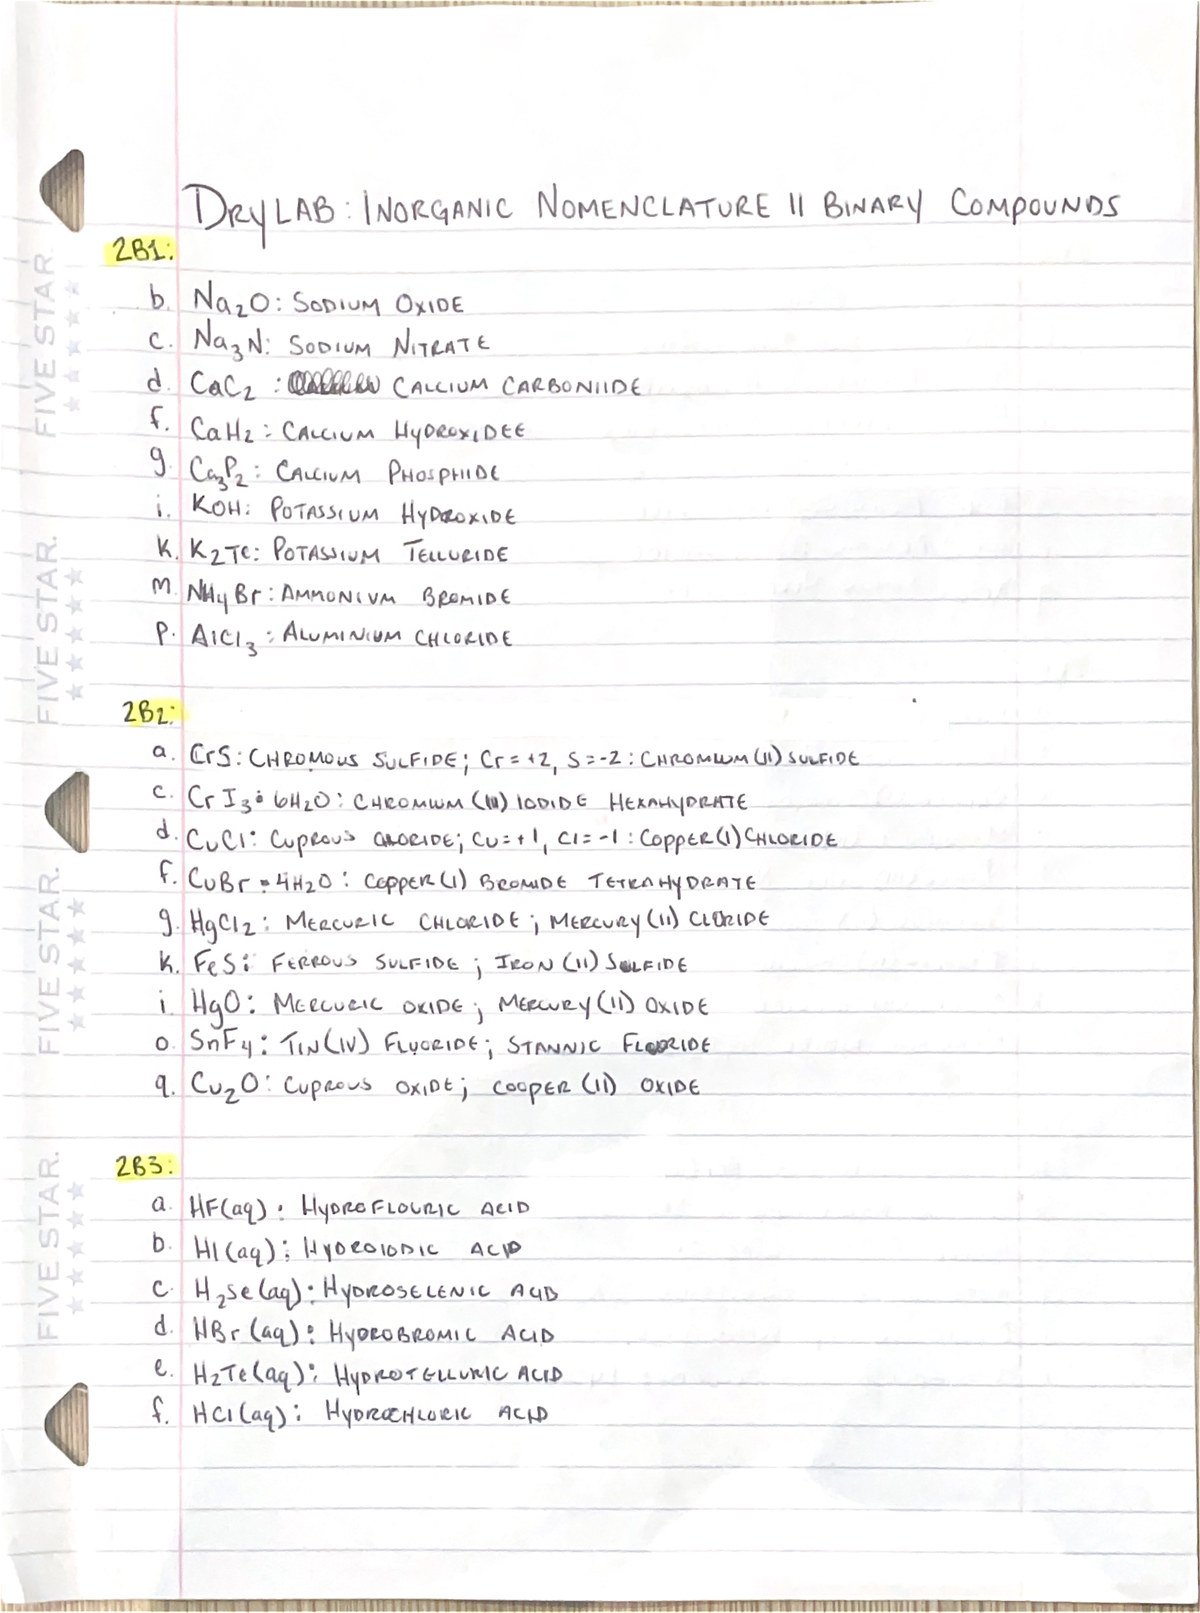 DRYLAB: INORGANIC NOMENCLATURE II BINARY COMPOUNDS
2B1:
b. Na2O: SODIUM OXIDE
c. Na3N: SODIUM NITRATE
d. CaC2: CALCIUM CARBONIIDE
f. CaH2: CALCIUM HYDROXIDEE
g. Ca3P2: CALCIUM PHOSPHIDE
i. KOH: POTASSIUM HYDROXIDE
K. K2Te: POTASSIUM TELLURIDE
M. NH4Br: AMMONIUM BROMIDE
P. AlCl3: ALUMINIUM CHLORIDE
2B2:
a. CrS: CHROMOUS SULFIDE; Cr = +2, S = -2: CHROMIUM (II) SULFIDE
c. CrI3 • 6H2O: CHROMIUM (III) IODIDE HEXAHYDRATE
d. CuCl: CUPROUS CHLORIDE; Cu = +1, Cl = -1: COPPER (I) CHLORIDE
f. CuBr • 4H2O: COPPER (I) BROMIDE TETRAHYDRATE
g. HgCl2: MERCURIC CHLORIDE; MERCURY (II) CLORIDE
K. FeS: FERROUS SULFIDE; IRON (II) SULFIDE
i. HgO: MERCURIC OXIDE; MERCURY (II) OXIDE
o. SnF4: TIN (IV) FLUORIDE; STANNIC FLUORIDE
q. Cu2O: CUPROUS OXIDE; COOPER (II) OXIDE
2B3:
a. HF(aq): HYDROFLOURIC ACID
b. HI(aq): HYDROIODIC ACID
c. H2Se(aq): HYDROSELENIC ACID
d. HBr(aq): HYDROBROMIC ACID
e. H2Te(aq): HYDROTELLURIC ACID
f. HCl(aq): HYDROCHLORIC ACID
FIVE STAR.
FIVE STAR.
FIVE STAR.
FIVE STAR.